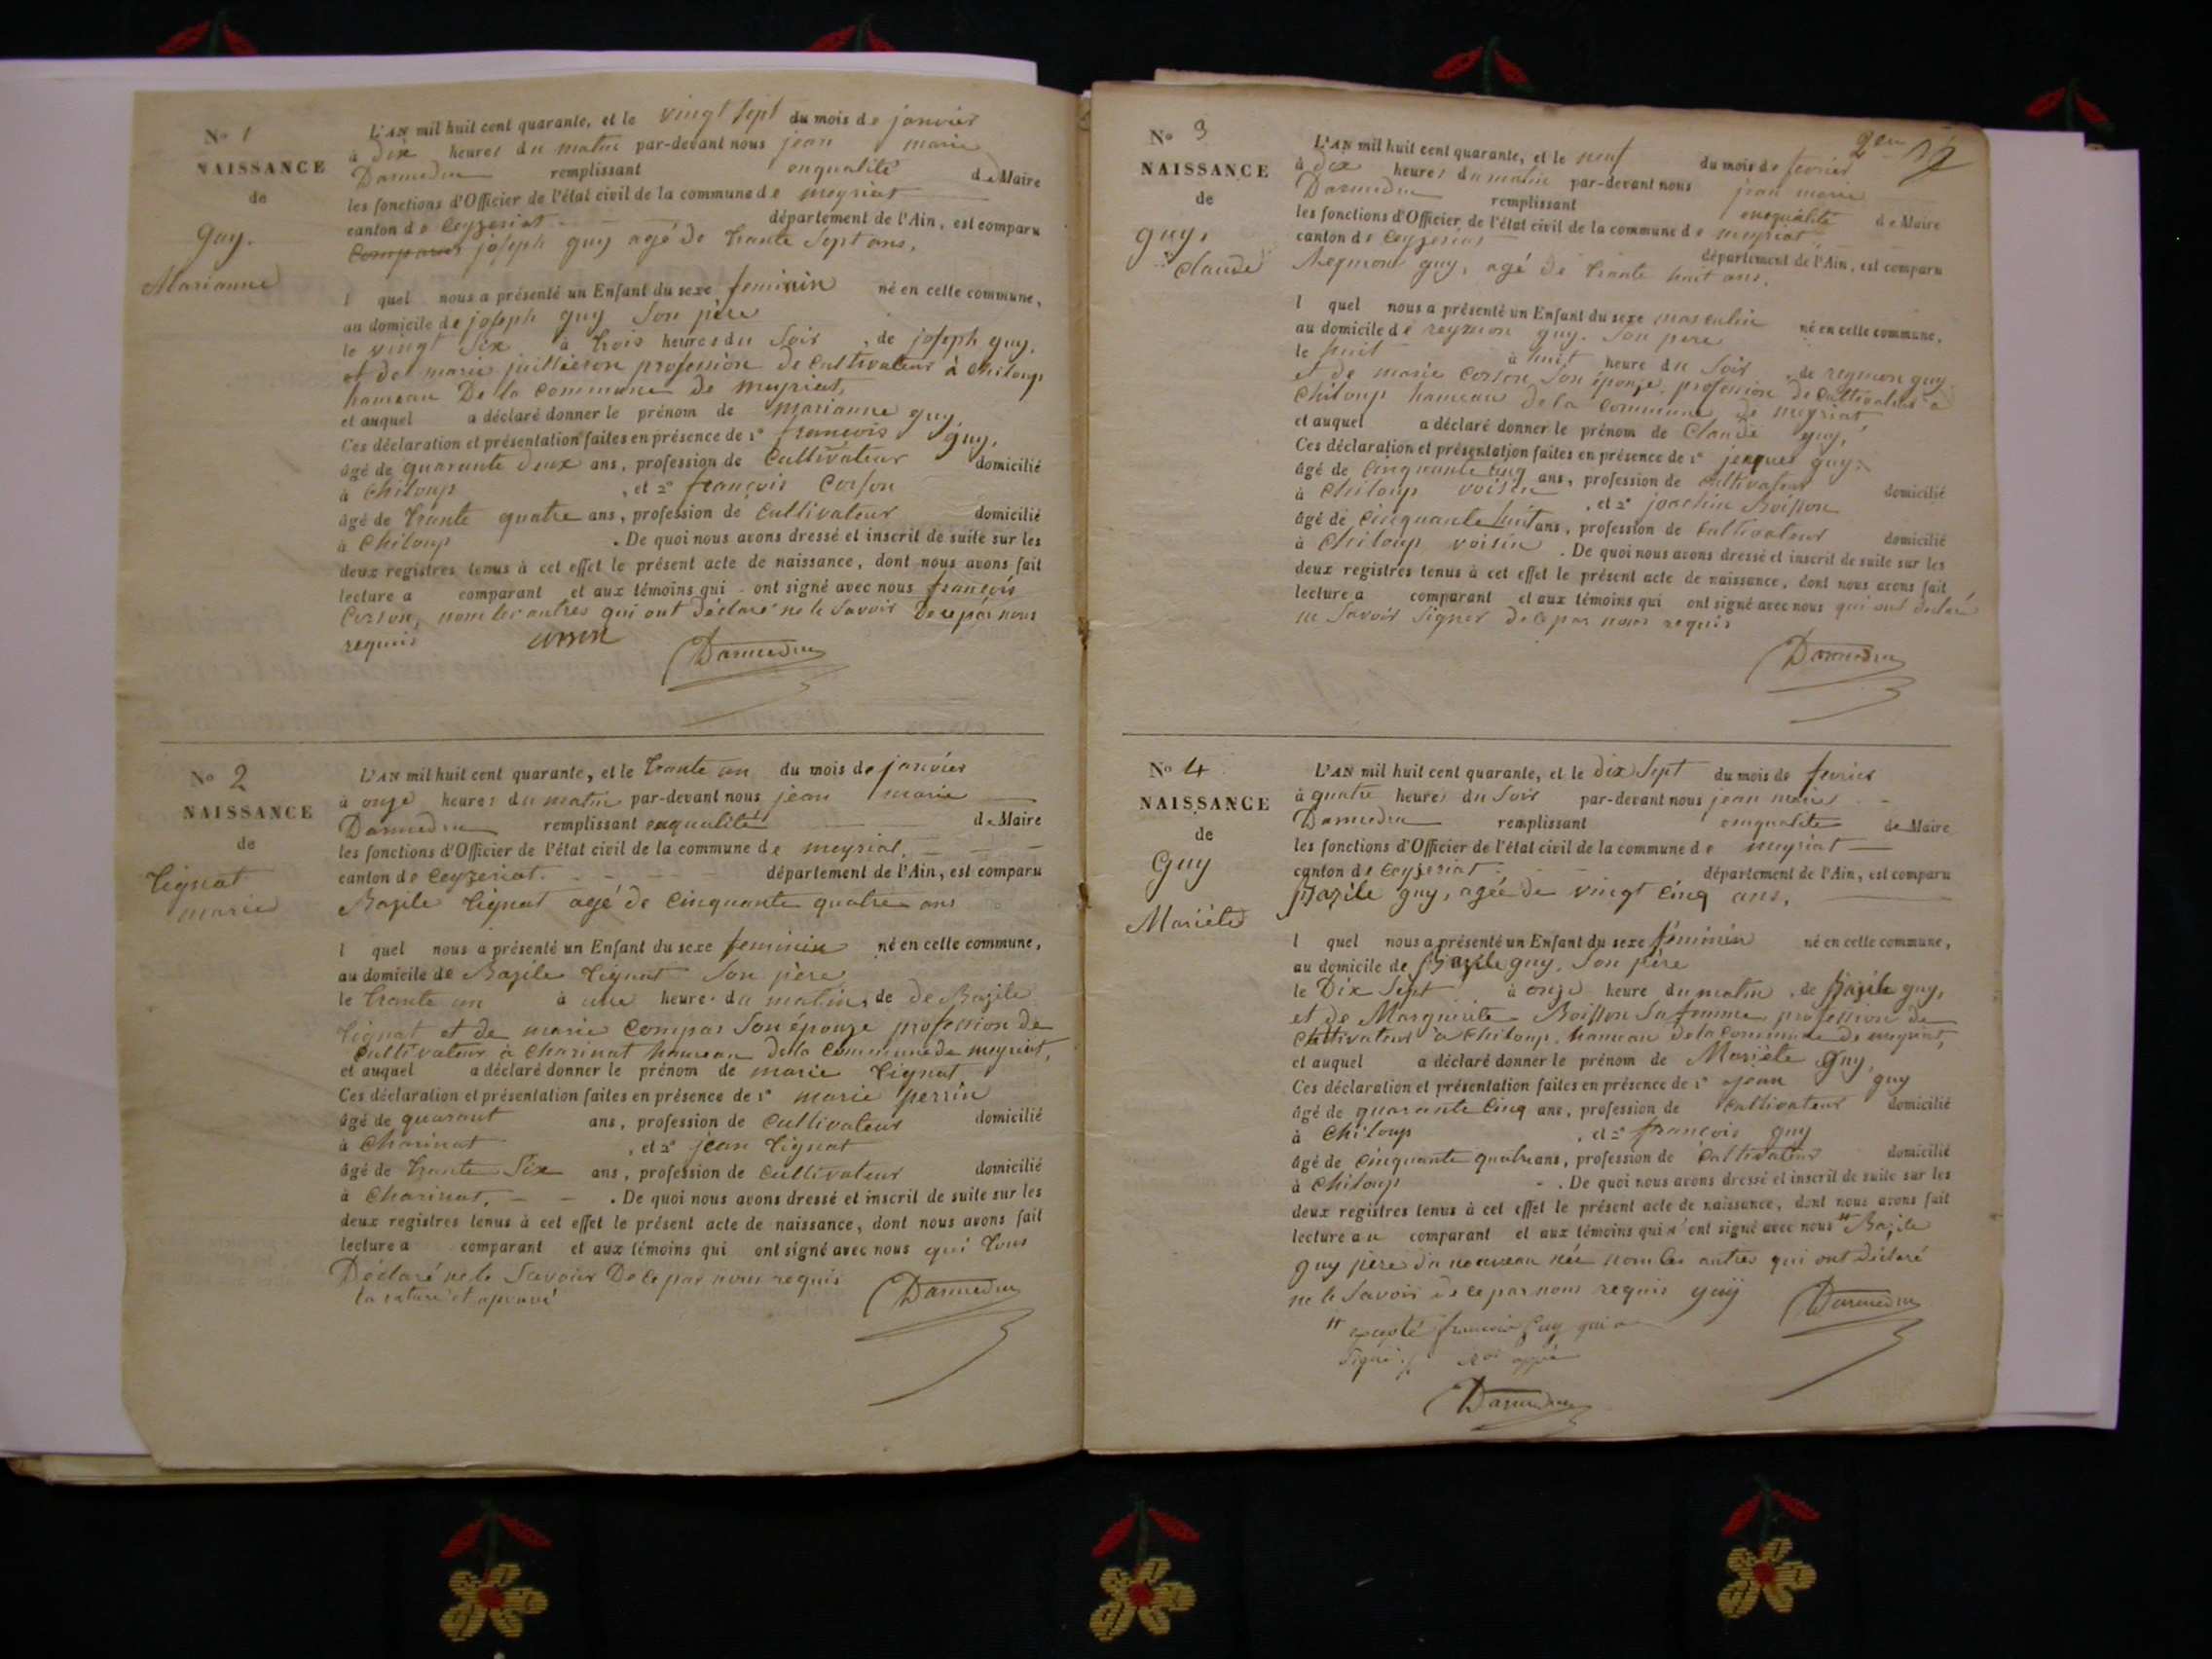 No 1
NAISSANCE
de
guy.
Marianne
L'AN mil huit cent quarante, et le vingt sept du mois de janvier
à dix heures du matin par-devant nous jean marie
remplissant enqualité de Maire
les fonctions d'Officier de l'état civil de la commune de meyriat
canton de Ceyzeriat département de l'Ain, est comparu
joseph guy agé de trante sept ans,
l quel nous a présenté un Enfant du sexe feminin né en cette commune,
au domicile de joseph guy son père
le vingt six à trois heures du soir, de joseph guy,
et de marie profession de Cultivateur à Chiloup
hameau De la Commune de meyriat,
et auquel a déclaré donner le prénom de marianne guy,
Ces déclaration et présentation faites en présence de 1° francois guy,
âgé de quarante deux ans, profession de Cultivateur domicilié
à Chiloup, et 2° françois Corson
âgé de trante quatre ans, profession de Cultivateur domicilié
à Chiloup. De quoi nous avons dressé et inscrit de suite sur les
deux registres tenus à cet effet le présent acte de naissance, dont nous avons fait
lecture a comparant et aux témoins qui ont signé avec nous françois
Corson, non les autres qui ont déclaré ne le savoir De ce par nous
requis corson
No 2
NAISSANCE
de
tignat
marie
L'AN mil huit cent quarante, et le trante un du mois de janvier
à onze heures du matin par-devant nous jean marie
remplissant enqualité de Maire
les fonctions d'Officier de l'état civil de la commune de meyriat.
canton de Ceyzeriat. département de l'Ain, est comparu
Bazile tignat agé de Cinquante quatre ans
l quel nous a présenté un Enfant du sexe feminin né en cette commune,
au domicile de Bazile tignat son père
le trante un à une heure du matin, de de Bazile
tignat et de marie Compas son épouze profession de
Cultivateur à Charinat hameau della Commune de meyriat,
et auquel a déclaré donner le prénom de marie tignat
Ces déclaration et présentation faites en présence de 1° marie perrin
âgé de quarant ans, profession de Cultivateur domicilié
à Charinat, et 2° jean tignat
âgé de trante six ans, profession de Cultivateur domicilié
à Charinat. De quoi nous avons dressé et inscrit de suite sur les
deux registres tenus à cet effet le présent acte de naissance, dont nous avons fait
lecture a comparant et aux témoins qui ont signé avec nous qui tous
Déclaré ne le Savoir De ce par nous requis
la rature et
No 3
NAISSANCE
de
guy,
Claude
L'AN mil huit cent quarante, et le neuf du mois de fevrier
à dix heures du matin par-devant nous jean marie
remplissant enqualité de Maire
les fonctions d'Officier de l'état civil de la commune de meyriat
canton de Ceyzeriat département de l'Ain, est comparu
Reymon guy, agé de trante huit ans,
l quel nous a présenté un Enfant du sexe masculin né en cette commune,
au domicile de reymon guy. son pere
le huit à huit heure du soir, de reymon guy
et de marie Corson son épouze, profession de Cultivateur a
Chiloup hameau de la Commune de meyriat
et auquel a déclaré donner le prénom de Claude guy,
Ces déclaration et présentation faites en présence de 1° jacques guy
âgé de Cinquante cinq ans, profession de Cultivateur domicilié
à Chiloup voisin, et 2° joachim Boisson
âgé de Cinquante huit ans, profession de Cultivateur domicilié
à Chiloup voisin. De quoi nous avons dressé et inscrit de suite sur les
deux registres tenus à cet effet le présent acte de naissance, dont nous avons fait
lecture a comparant et aux témoins qui ont signé avec nous qui ont declaré
ne savoir signer de ce par nous requis
No 4
NAISSANCE
de
Guy
Mariète
L'AN mil huit cent quarante, et le dix sept du mois de fevrier
à quatre heures du soir par-devant nous jean marie
remplissant enqualité de Maire
les fonctions d'Officier de l'état civil de la commune de meyriat
canton de Ceyzeriat département de l'Ain, est comparu
Bazile guy, agée de vingt cinq ans,
l quel nous a présenté un Enfant du sexe féminin né en cette commune,
au domicile de Bazile guy, son père
le Dix sept à onze heure du matin, de Bazile guy,
et de Marguerite Boisson sa femme profession de
Cultivateur à Chiloup, hameau de la Commune de meyriat,
et auquel a déclaré donner le prénom de Mariète guy,
Ces déclaration et présentation faites en présence de 1° jean guy
âgé de quarante Cinq ans, profession de Cultivateur domicilié
à Chiloup, et 2° françois guy
âgé de Cinquante quatre ans, profession de Cultivateur domicilié
à Chiloup. De quoi nous avons dressé et inscrit de suite sur les
deux registres tenus à cet effet le présent acte de naissance, dont nous avons fait
lecture au comparant et aux témoins qui n'ont signé avec nous Bazile
guy père du nouveau née non les autres qui ont Déclaré
ne le Savoir de ce par nous requis guy
excepté françois guy qui a
signé